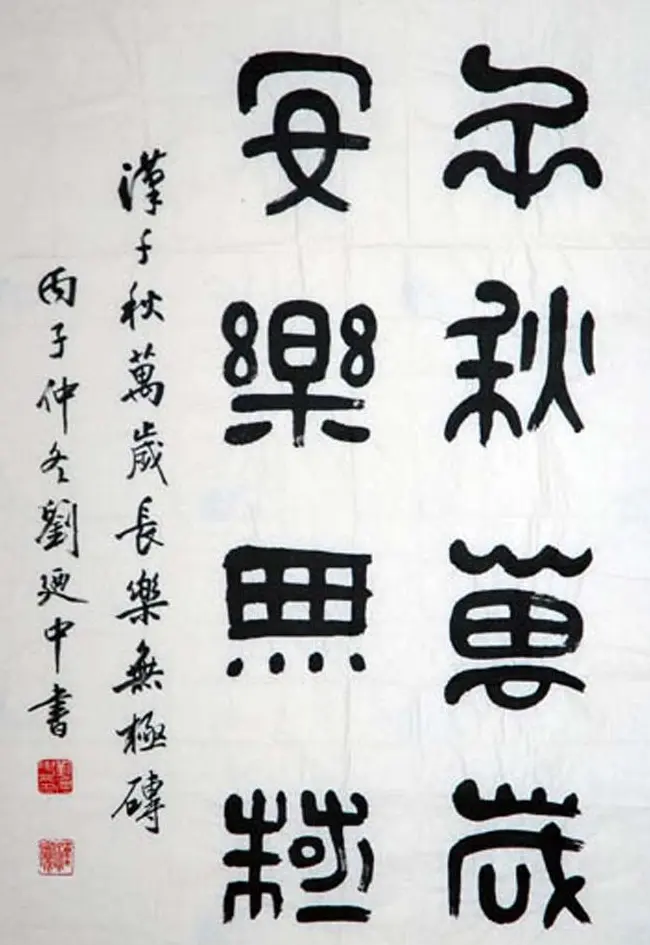 千秋萬歲
安樂無極
漢千秋萬歲長樂無極磚
丙子仲冬劉廼中書